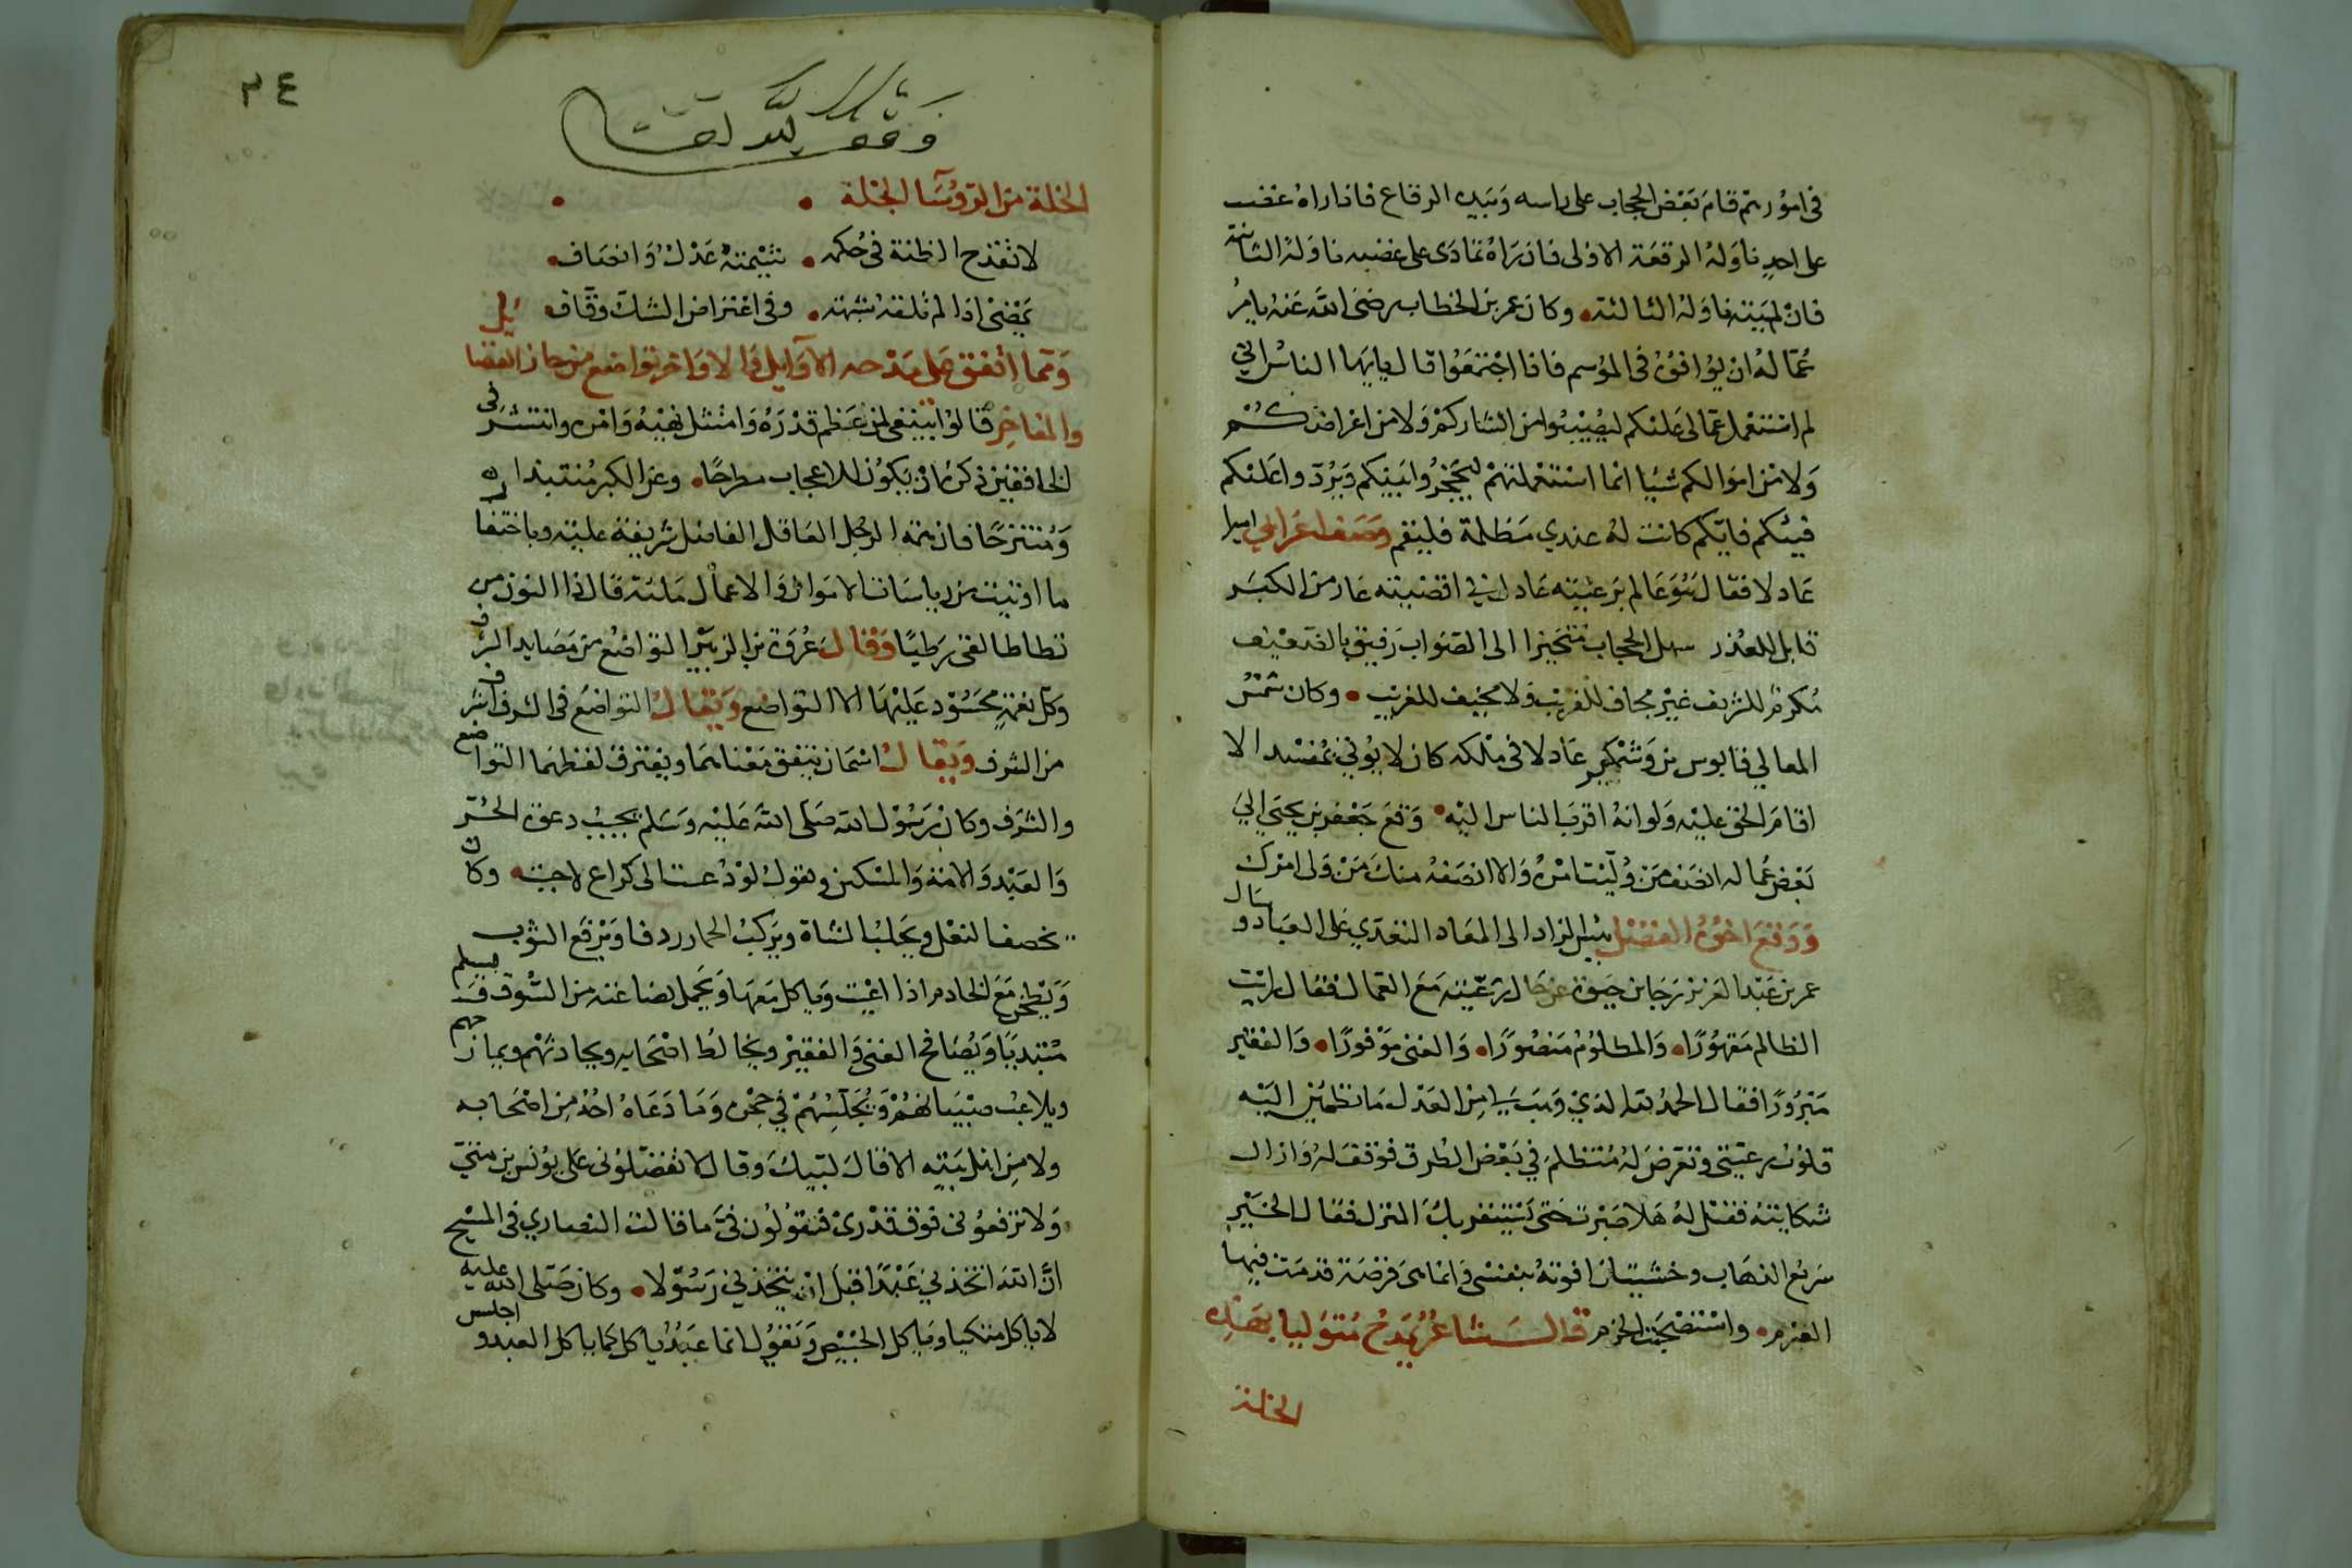 في امور ثم قام بعض الحجاب على راسه وبيده الرقاع فاذا راه غضب
على احد ناوله الرقعة الاولى فان راه تمادى على غضبه ناوله الثانية
فان لم ينته ناوله الثالثة وكان عمر بن الخطاب رضي الله عنه يامر
عماله ان يوافوه في الموسم فاذا اجتمعوا قال يايها الناس اني
لم استعمل عمالي عليكم ليصيبوا من ابشاركم ولا من اعراضكم
ولا من اموالكم شيا انما استعملتهم ليحجزوا بينكم ويردوا عليكم
فيئكم فايكم كانت له عندي مظلمة فليقم وصف اعرابي اميرا
عادلا فقال هو عالم برعيته عادل في اقضيته عار من الكبر
قابل للعذر سهل الحجاب متحيزا الى الصواب رفيق بالضعيف
مكرم للشريف غير مجاف للقريب ولا مخيف للغريب وكان شمس
المعالي قابوس بن وشمكير عادلا في ملكه كان لا يوتي بمفسد الا
اقام الحق عليه ولو انه اقرب الناس اليه وقع جعفر بن يحيى الى
بعض عماله انصف من وليت امره والا انصفه منك من ولى امرك
ووقع اخوه الفضل بئس الزاد الى المعاد التعدي على العباد وسال
عمر بن عبد العزيز رجا بن حيوة عن حال رعيته مع العمال فقال رايت
الظالم مقهورا والمظلوم منصورا والغنى موفورا والفقير
مبرورا فقال الحمد لله الذي وهب لي من العدل ما تطمئن اليه
قلوب رعيتي وتعرض له متظلم في بعض الطرق فوقف له وازال
شكايته فقيل له هلا صبرت حتى يستقر بك المنزل فقال الخير
سريع الذهاب وخشيت ان افوته بنفسي وانما هي فرصة قدمت فيها
العزم واستصحبت الحزم قال الشاعر يمدح متوليا بهذه
الخلة
٣٤
وقف لله تعالى
الخلة من الروسا الجلة
لا تقدح الظنة في حكمه شيمته عدل وانصاف
يمضي اذا لم تلقه شبهة وفي اعتراض الشك وقاف
ومما اتفق على مدحه الاوايل والاواخر تواضع من حاز الفضايل
والمفاخر قالوا ينبغي لمن عظم قدره وامتثل نهيه وامره وانتشر في
الخافقين ذكره ان يكون للاعجاب مطرحا وعن الكبر منتبذا
ومنتزحا فان همة الرجل العاقل الفاضل شريفة علية وباختفا
ما اوتيت من رياسات الاموال والاعمال ملئة قال ذا النون من
تطاطا لقي رطبا وقال عروة بن الزبير التواضع من مصايد الشرف
وكل نعمة محسود عليها الا التواضع ويقال التواضع في الشرف اشرف
من الشرف ويقال اسمان يتفق معناهما ويفترق لفظهما التواضع
والشرف وكان رسول الله صلى الله عليه وسلم يجيب دعوة الحر
والعبد والامة والمسكين ويقول لو دعيت الى كراع لاجبت وكان
يخصف النعل ويحلب الشاة ويركب الحمار ردفا ويرقع الثوب
ويطحن مع الخادم اذا اعيت وياكل معها ويحمل بضاعته من السوق ويسلم
مبتديا ويصافح الغنى والفقير ويخالط اصحابه ويحادثهم ويمازحهم
ويلاعب صبيانهم ويجلسهم في حجره وما دعاه احد من اصحابه
ولا من اهل بيته الا قال لبيك وقال لا تفضلوني على يونس بن متى
ولا ترفعوني فوق قدري فتقولون في ما قالت النصاري في المسيح
ان الله اتخذني عبدا قبل ان يتخذني رسولا وكان صلى الله عليه
لا ياكل متكيا وياكل الخبيص ويقول انما عبد ياكل كما ياكل العبد واجلس